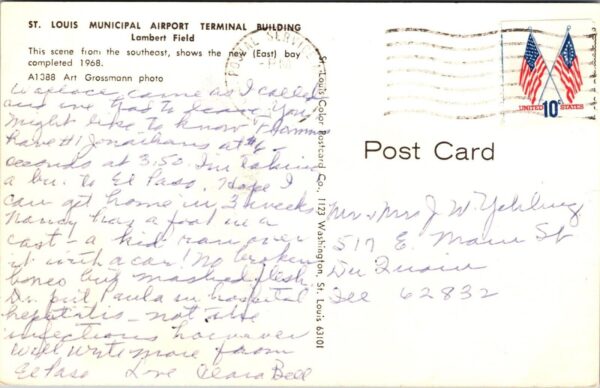 ST. LOUIS MUNICIPAL AIRPORT TERMINAL BUILDING
Lambert Field
This scene from the southeast, shows the new (East) bay
completed 1968.
A1388 Art Grossmann photo
Wallace came as I called
and we had to leave. You
might like to know
have #1 Jonathans at $6-
seconds at 3.50. I'm taking
a bu. to El Paso. Hope I
can get home in 3 weeks
Nancy has a foot in a
cast - a kid ran over
it with a car! No broken
bones but mashed flesh.
Dr. put Paula in hospital
hepatitis - not
infectious however
Will write more from
El Paso Love Clara Bell
St. Louis Color Postcard Co., 1123 Washington, St. Louis 63101
POSTAL SERVICE
UNITED 10c STATES
Post Card
Mr & Mrs J. W. Yehling
517 E. Main St
Du Quoin
Ill 62832